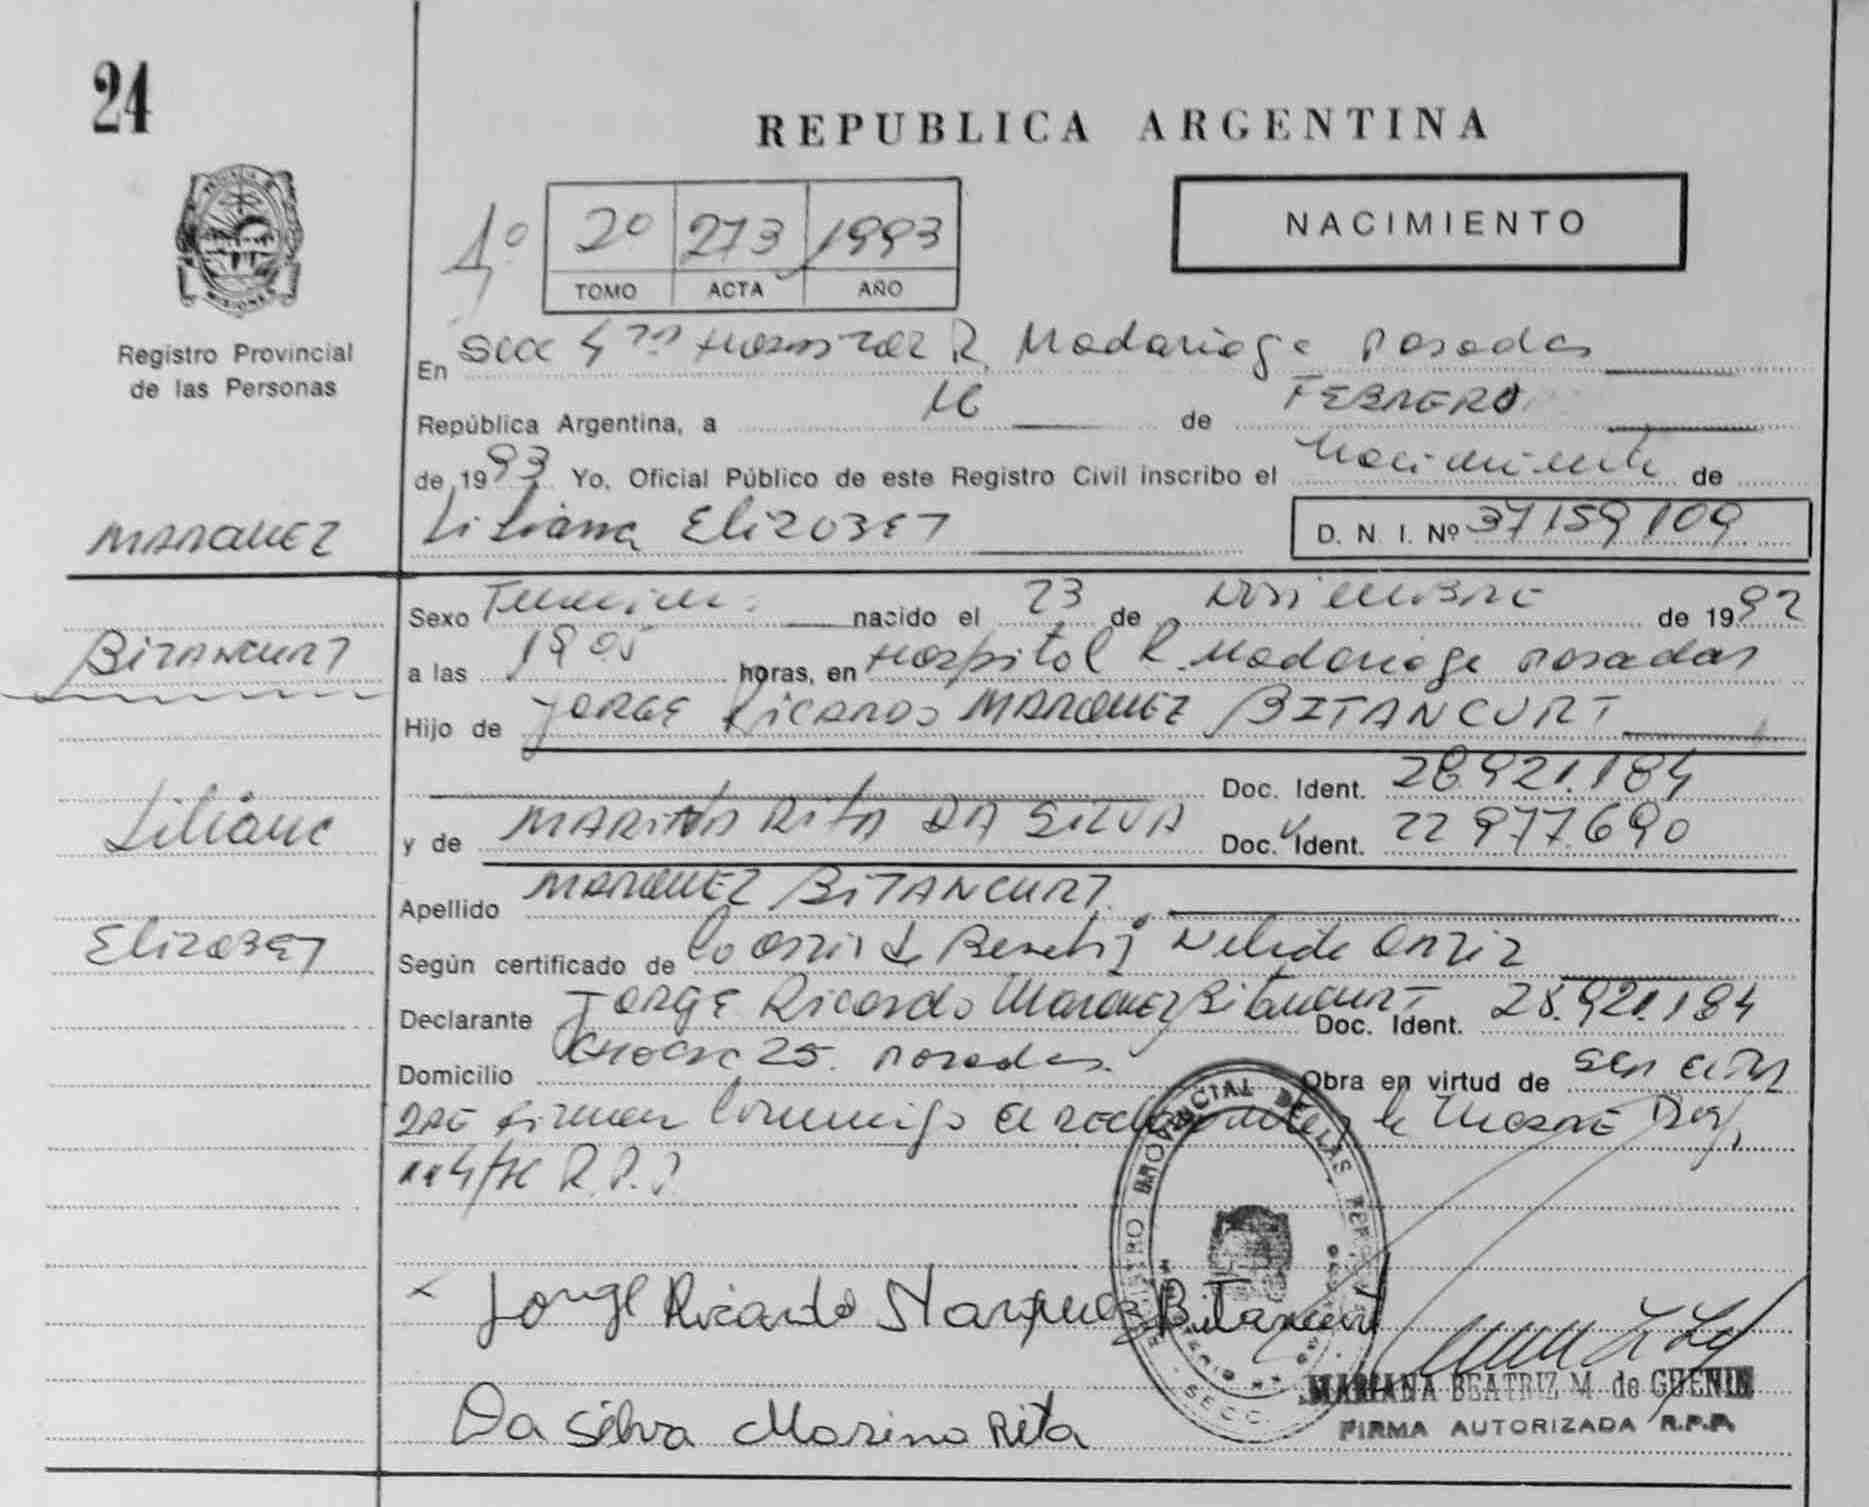 24
REPUBLICA ARGENTINA
NACIMIENTO
1º 2º 273 1993
TOMO ACTA AÑO
Registro Provincial
de las Personas
En Secc 4ta Hospital R. Madariaga Posadas
República Argentina, a 16 de FEBRERO
de 1993 Yo, Oficial Público de este Registro Civil inscribo el Nacimiento de
MARQUEZ
Liliana Elizabet D. N. I. Nº 37159109
Sexo Femenino nacido el 23 de Diciembre de 1992
BITANCURT
a las 19 05 horas, en Hospital R. Madariaga Posadas
Hijo de Jorge Ricardo MARQUEZ BITANCURT
Doc. Ident. 28.921.184
Liliana
y de MARINA Rita DA SILVA Doc. Ident. 22 977.690
Apellido MARQUEZ BITANCURT
Elizabet
Según certificado de Nelida Ortiz
Declarante Jorge Ricardo Marquez Bitancurt Doc. Ident. 28.921.184
Domicilio 25. Posadas Obra en virtud de ser
Padre firman conmigo la Madre
R.P.P.
REGISTRO PROVINCIAL DE LAS PERSONAS
Jorge Ricardo Marquez Bitancurt
MARIANA BEATRIZ M. de GUENIN
FIRMA AUTORIZADA R.P.P.
Da Silva Marina Rita